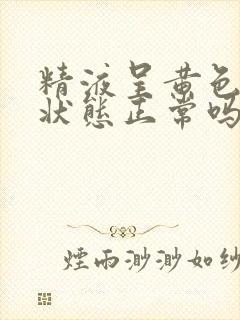 精液呈黄色
状態正常吗
煙雨渺渺如纱